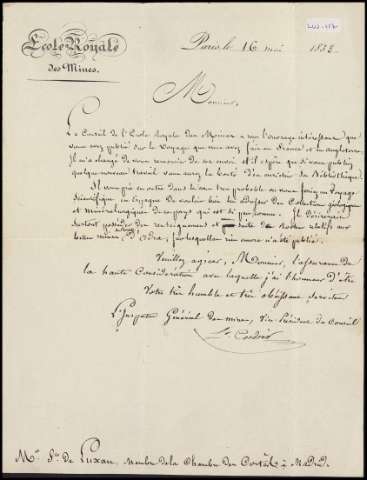 École Royale
des Mines.
Paris le 16 mai 1838
Monsieur,
Le Conseil de l'École Royale des Mines a reçu l'ouvrage intéressant que
vous avez publié sur le Voyage que vous avez fait en France et en Angleterre.
Il m'a chargé de vous remercier de cet envoi et il espère que si vous publiez
quelque nouveau travail vous aurez la bonté d'en enrichir sa Bibliothèque.
Il vous prie en outre dans le cas très probable où vous feriez un Voyage
Scientifique en Espagne de vouloir bien lui adresser des Collections géologiques
et minéralurgiques de ce pays qui est si peu connu. Il désirerait
surtout posséder des renseignements et une suite de Roches relatifs aux
belles mines d'Adra, sur lesquelles rien encore n'a été publié.
Veuillez agréer, Monsieur, l'assurance de
la haute Considération avec laquelle j'ai l'honneur d'être
Votre très humble et très obéissant serviteur
L'Inspecteur Général des mines, Vice Président du Conseil
Cordier
Mr. de Luxan, membre de la Chambre des Cortès à Madrid.